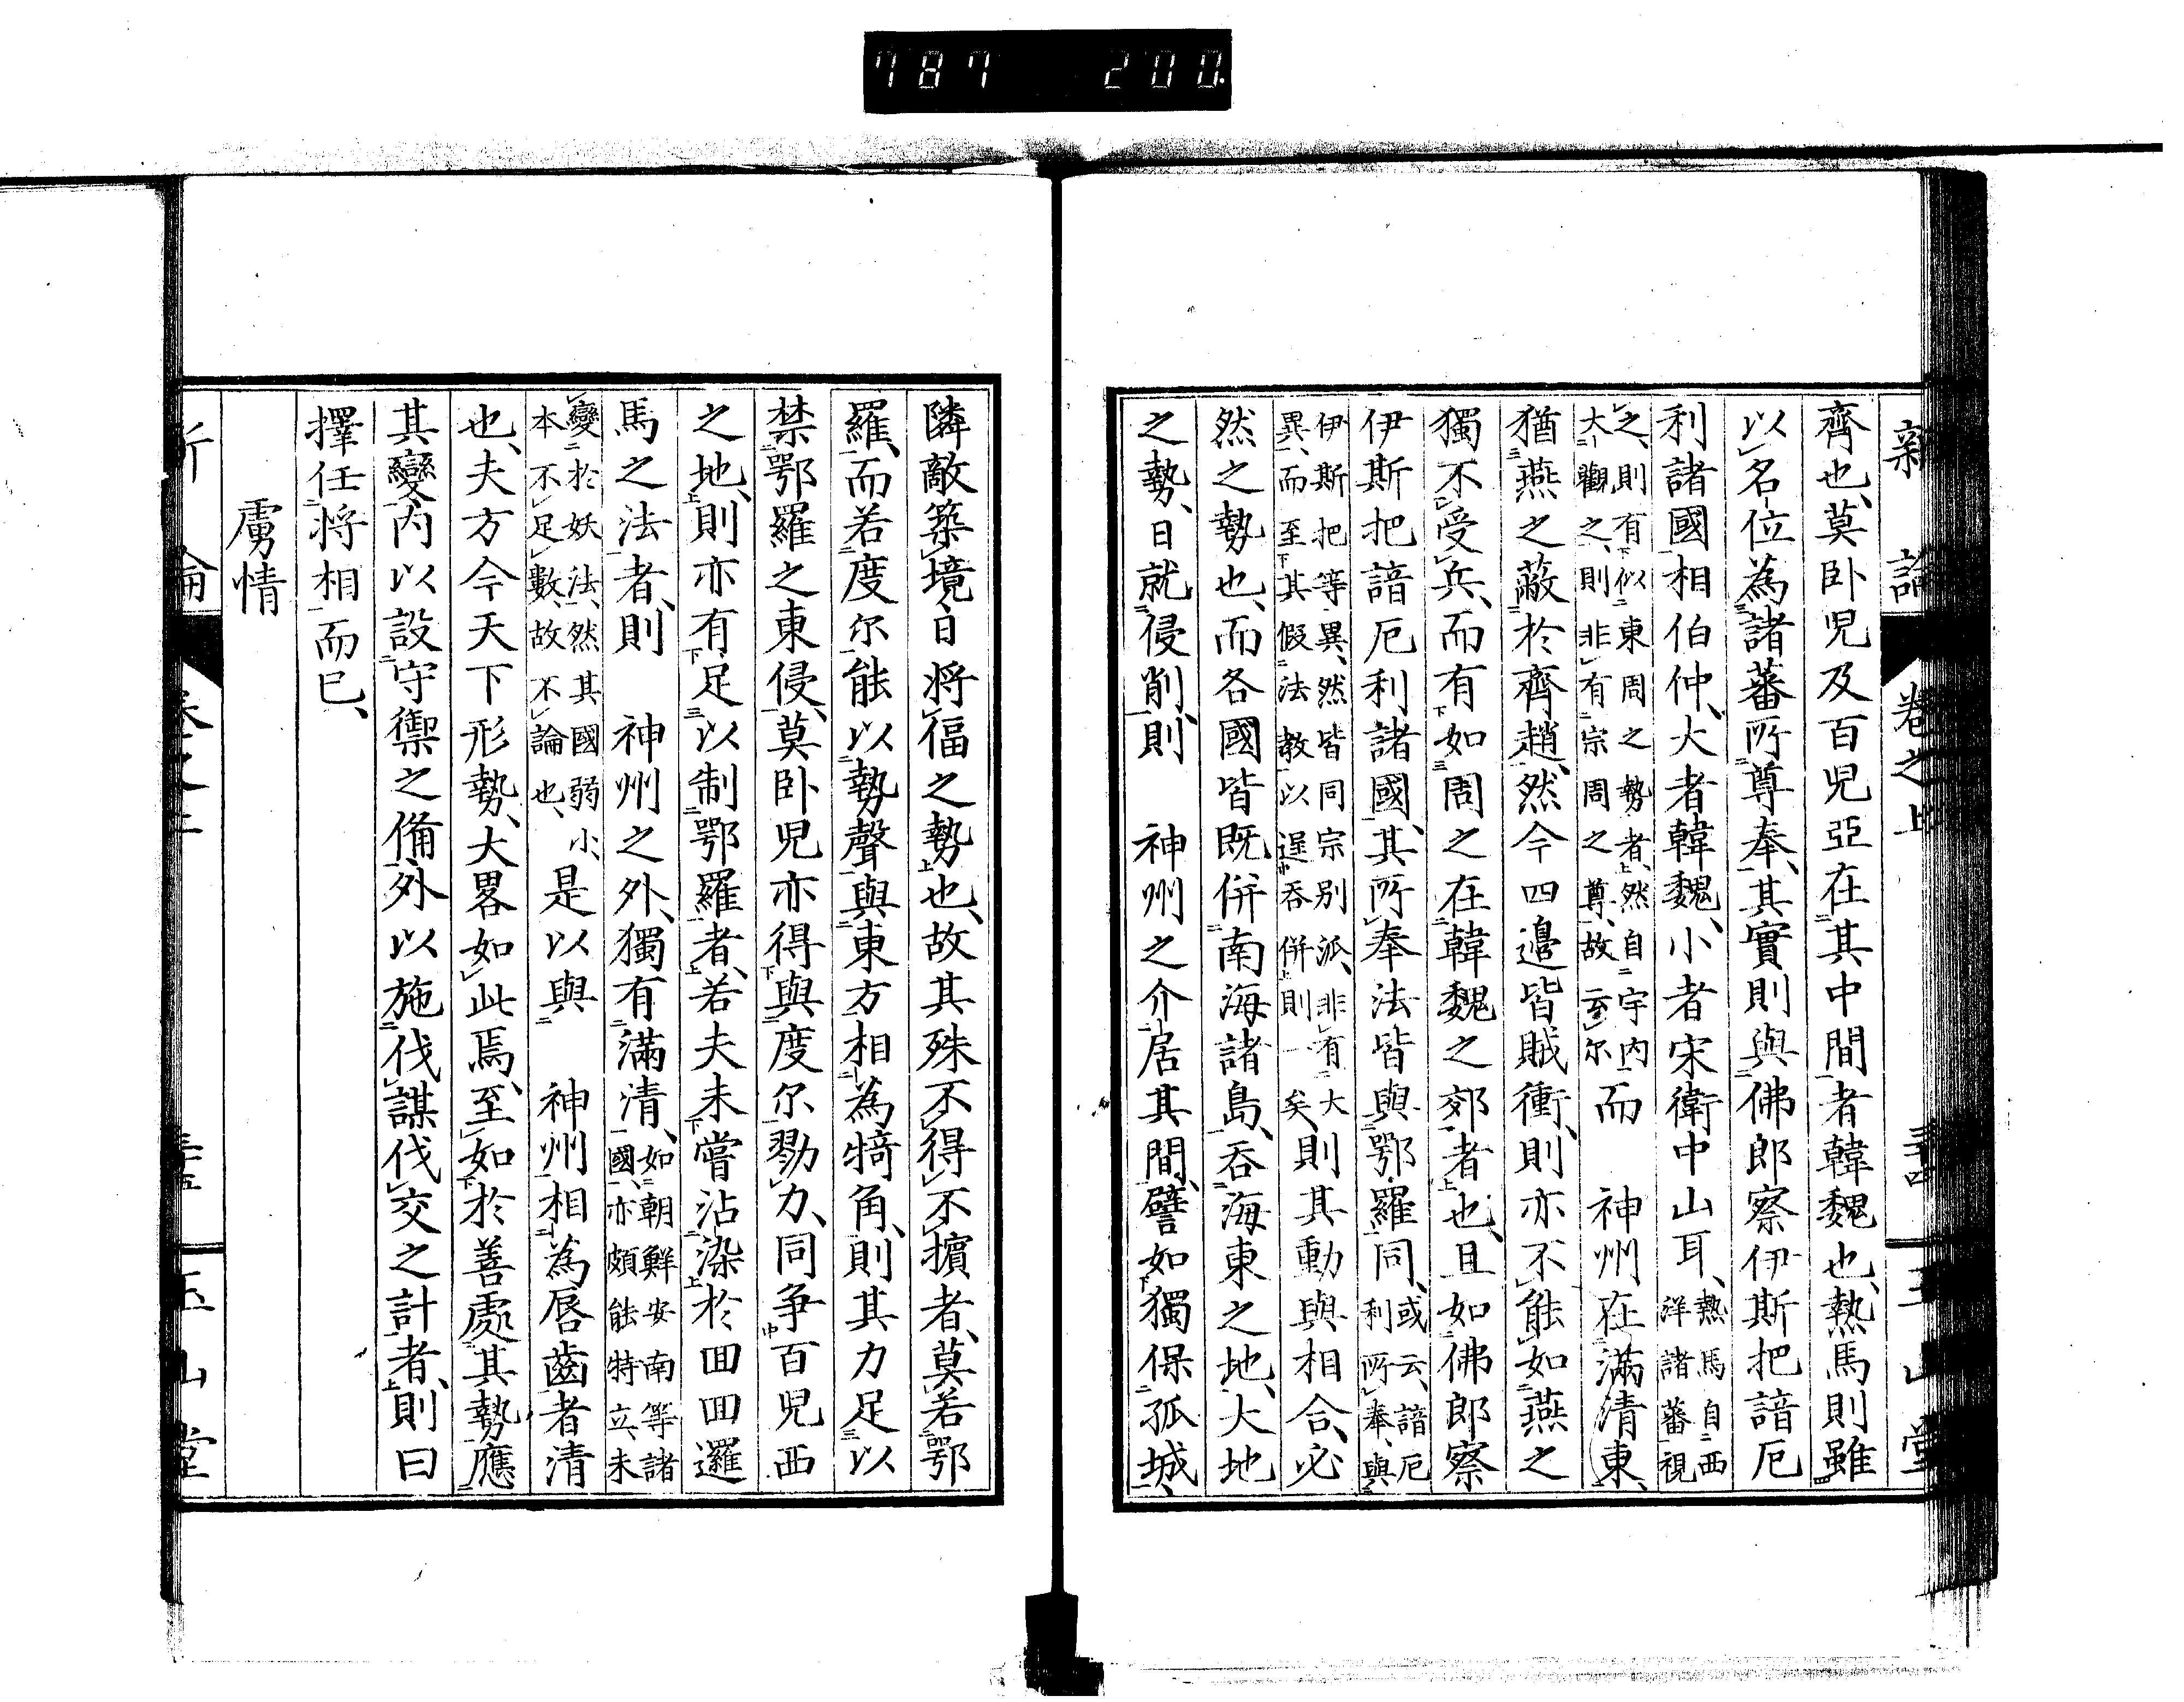 787 200.
新論 卷之上
齊也、莫臥児及百児亞在其中間者韓魏也、熱馬則雖
以名位為諸蕃所尊奉、其實則與佛郎察伊斯把諳厄
利諸國相伯仲、大者韓魏、小者宋衛中山耳、熱馬自西洋諸蕃視
之、則有似東周之勢者、然自宇內大觀之、則非有宗周之尊、故云尔而　神州在滿清東、
猶燕之蔽於齊趙、然今四邊皆賊衝、則亦不能如燕之
獨不受兵、而有如周之在韓魏之郊者也、且如佛郎察
伊斯把諳厄利諸國、其所奉法皆與鄂羅同、或云、諳厄利所奉、與
伊斯把等異、然皆同宗別派、非有大異、而至其假法教以逞吞併則一矣、則其動與相合、必
然之勢也、而各國皆既併南海諸島、吞海東之地、大地
之勢、日就侵削、則　神州之介居其間、譬如獨保孤城、
隣敵築境、日將偪之勢也、故其殊不得不擯者、莫若鄂
羅、而若度尔能以勢聲與東方相為犄角、則其力足以
禁鄂羅之東侵、莫臥児亦得與度尔勠力、同爭百児西
之地、則亦有足以制鄂羅者、若夫未嘗沾染於回回邏
馬之法者、則　神州之外、獨有滿清、如朝鮮安南等諸國、亦頗能特立、未
變於妖法、然其國弱小、本不足數、故不論也、是以與　神州相為唇齒者清
也、夫方今天下形勢、大畧如此焉、至如於善處其勢應
其變、內以設守禦之備、外以施伐謀伐交之計者、則曰
擇任將相而已、
虜情
玉山堂